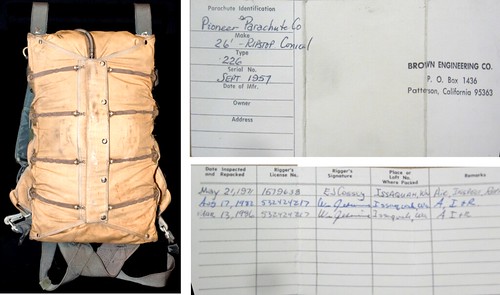 Parachute Identification
Pioneer Parachute Co
Make
26' - Ripstop Conical
Type
226
Serial No.
Sept 1957
Date of Mfr.
Owner
Address
BROWN ENGINEERING CO.
P. O. Box 1436
Patterson, California 95363
Date Inspected and Repacked Rigger's License No. Rigger's Signature Place or Loft No. Where Packed Remarks
May 21, 1579638 EJ Issaquah, Wa
Aug 17, 1982 532424217 Wm Issaquah, Wa A, I & R
13, 532424217 Wm Issaquah, Wa A I & R